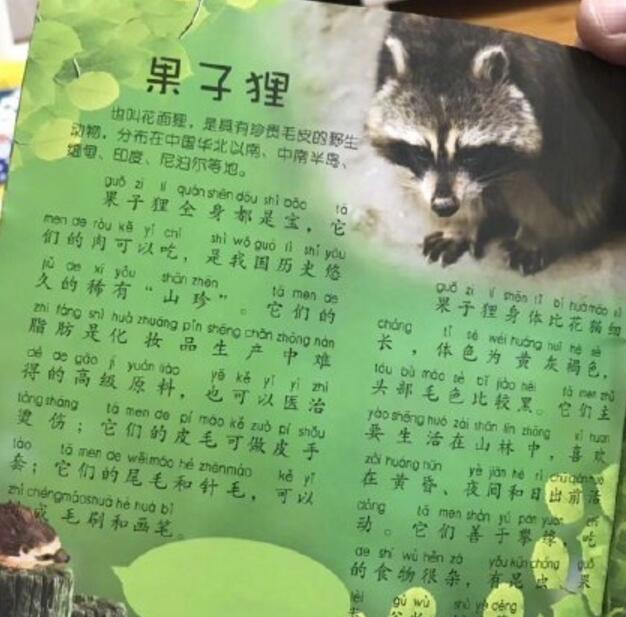 果子狸
也叫花面狸，是具有珍贵毛皮的野生
动物，分布在中国华北以南、中南半岛、
缅甸、印度、尼泊尔等地。
guǒ zi lí quán shēn dōu shì bǎo tā
果子狸全身都是宝，它
men de ròu kě yǐ chī shì wǒ guó lì shǐ yōu
们的肉可以吃，是我国历史悠
jiǔ de xī yǒu shān zhēn tā men de
久的稀有“山珍”。它们的
zhī fáng shì huà zhuāng pǐn shēng chǎn zhōng nán
脂肪是化妆品生产中难
dé de gāo jí yuán liào yě kě yǐ yī zhì
得的高级原料，也可以医治
tàng shāng tā men de pí máo kě zuò pí shǒu
烫伤；它们的皮毛可做皮手
tào tā men de wěi máo hé zhēn máo kě yǐ
套；它们的尾毛和针毛，可以
zhì chéng máo shuā hé huà bǐ
成毛刷和画笔。
guǒ zi lí shēn tǐ bǐ huā māo xì
果子狸身体比花猫细
cháng tǐ sè wéi huáng huī hè sè
长，体色为黄灰褐色，
tóu bù máo sè bǐ jiào hēi tā men zhǔ
头部毛色比较黑。它们主
yào shēng huó zài shān lín zhōng xǐ huan
要生活在山林中，喜欢
zài huáng hūn yè jiān hé rì chū qián huó
在黄昏、夜间和日出前活
dòng tā men shàn yú pān yuán chī
动。它们善于攀缘，吃
de shí wù hěn zá yǒu kūn chóng guǒ
的食物很杂，有昆虫、果
gǔ wù shù yè děng